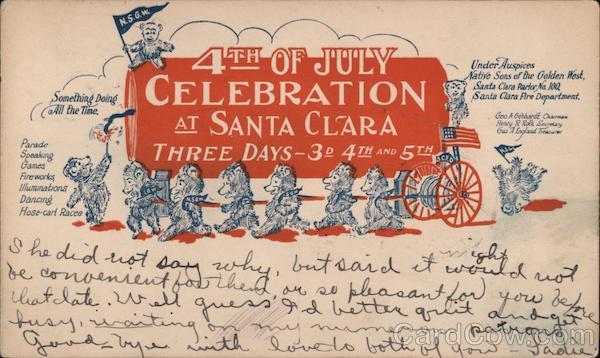 N.S.G.W.
4TH OF JULY
CELEBRATION
AT SANTA CLARA
THREE DAYS - 3D 4TH AND 5TH
Something Doing
All the Time.
Parade
Speaking
Games
Fireworks,
Illuminations,
Dancing
Hose-cart Races
Under Auspices
Native Sons of the Golden West,
Santa Clara Parlor, No. 100,
Santa Clara Fire Department.
Geo. A. Gebhardt, Chairman
Secretary
Gus A. England Treasurer
S.C.F.D.
might
She did not say why, but said it would not
be convenient for them or so pleasant for you before
that date. Well guess I'd better quit and get
busy, waiting on my numerous patrons
Good-bye with love to both of you Sadie
CardCow.com